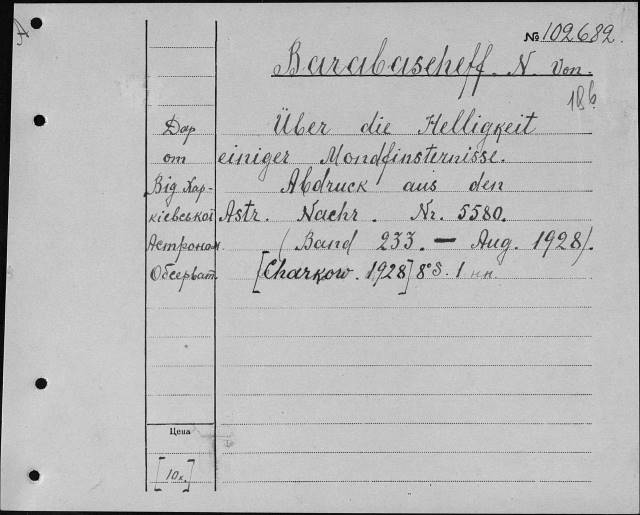 А
№ 102682.
Barabascheff. N. von.
18б
Дар
от
Від Хар-
кієвської
Астроном.
Обсерват.
Über die Helligkeit
einiger Mondfinsternisse.
Abdruck aus den
Astr. Nachr. Nr. 5580.
(Band 233. — Aug. 1928).
[Charkow. 1928] 8° S. 1 нн.
Цена
[10к.]